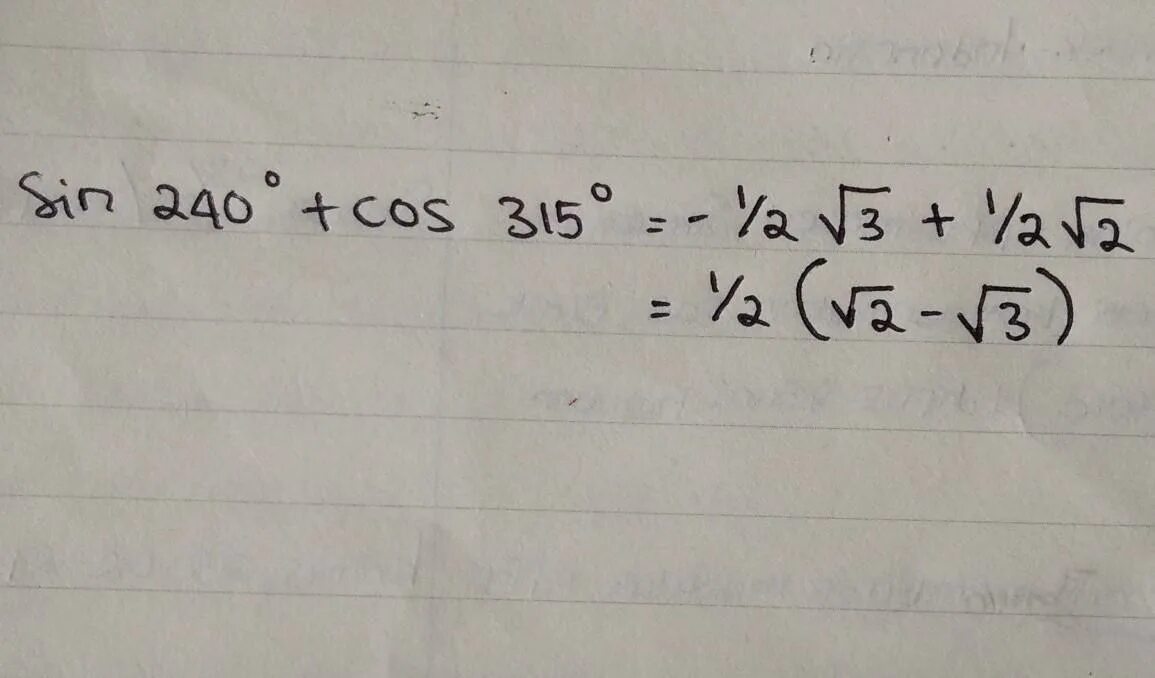 Sin 240° + cos 315° = - 1/2 √3 + 1/2 √2
= 1/2 (√2 - √3)